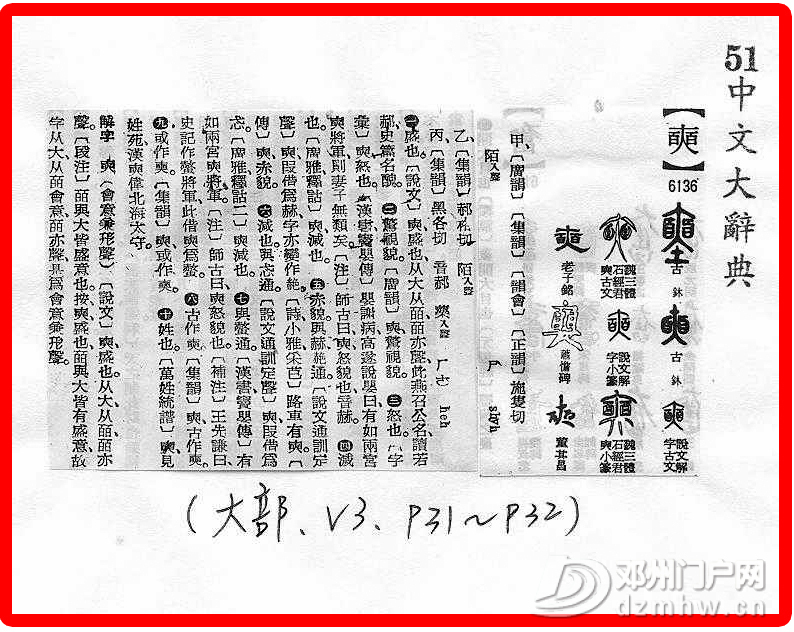 51中文大辭典
【奭】
6136
古鉢
古鉢
說文解字古文
魏三體石經君奭古文
說文解字小篆
魏三體石經君奭小篆
老子銘
蕭憺碑
董其昌
甲、〔廣韻〕〔集韻〕〔韻會〕〔正韻〕施隻切
陌入聲 ㄕ shyh
乙、〔集韻〕郝格切 陌入聲
丙、〔集韻〕黑各切 音郝 藥入聲 ㄏㄜ heh
㊀盛也。〔說文〕奭、盛也、从大从皕、皕亦聲、此燕召公名、讀若
郝、史篇名醜。㊁驚視貌。〔廣韻〕奭、驚視貌。㊂怒也。〔字
彙〕奭、怒也。〔漢書竇嬰傳〕嬰謝病高遂說嬰曰有如兩宮
奭將軍則妻子無類矣〔注〕師古曰、奭、怒貌也、音赫。㊃減
也。〔廣雅釋詁〕奭、減也。㊄赤貌。與赫、赩通。〔說文通訓定
聲〕奭、叚借爲赫、字亦變作赩。〔詩小雅采芑〕路車有奭。〔
傳〕奭、赤貌。㊅減也。與忒通。〔說文通訓定聲〕奭、叚借爲
忒。〔廣雅釋詁二〕奭、減也。㊆與螫通。〔漢書竇嬰傳〕有
如兩宮奭將軍。〔注〕師古曰、奭、怒貌也。〔補注〕王先謙曰、
史記作螫將軍、此借奭爲螫。㊇古作奭。〔集韻〕奭、古作奭。
㊈或作奭。〔集韻〕奭、或作奭。㊉姓也。〔萬姓統譜〕奭、見
姓苑、漢奭偉、北海太守。
解字 奭〔會意兼形聲〕〔說文〕奭、盛也、从大从皕、皕亦
聲。〔段注〕皕與大皆盛意也。按奭、盛也、皕與大皆有盛意、故
字从大从皕會意、皕亦聲、是爲會意兼形聲。
(大部、V3、P31～P32)
邓州门户网
dzmhw.cn